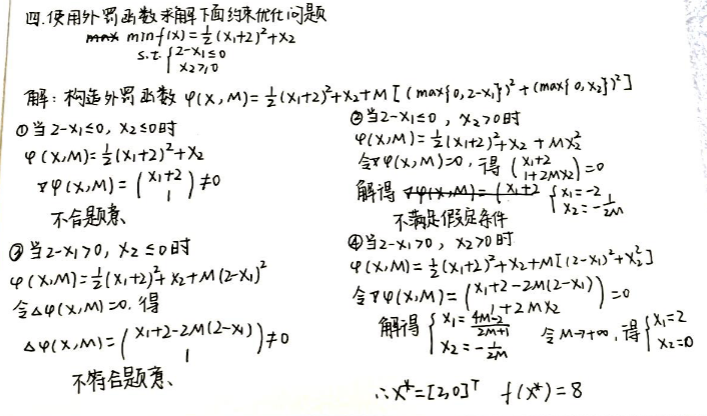 四.使用外罚函数求解下面约束优化问题
max min f(x)=½(x₁+2)²+x₂
s.t. { 2-x₁≤0
x₂≥0
解：构造外罚函数 φ(x,M)=½(x₁+2)²+x₂+M[(max{0,2-x₁})²+(max{0,x₂})²]
①当2-x₁≤0，x₂≤0时
φ(x,M)=½(x₁+2)²+x₂
∇φ(x,M)=(x₁+2
1)≠0
不合题意、
②当2-x₁≤0，x₂>0时
φ(x,M)=½(x₁+2)²+x₂+Mx₂²
令∇φ(x,M)=0，得 (x₁+2
1+2Mx₂)=0
解得 ∇φ(x,M)=(x₁+2 {x₁=-2
x₂=-1/2M
不满足假定条件
③当2-x₁>0，x₂≤0时
φ(x,M)=½(x₁+2)²+x₂+M(2-x₁)²
令△φ(x,M)=0.得
△φ(x,M)=(x₁+2-2M(2-x₁)
1)≠0
不符合题意、
④当2-x₁>0，x₂>0时
φ(x,M)=½(x₁+2)²+x₂+M[(2-x₁)²+x₂²]
令∇φ(x,M)=(x₁+2-2M(2-x₁)
1+2Mx₂)=0
解得 {x₁=4M-2/2M+1
x₂=-1/2M 令M→+∞，得 {x₁=2
x₂=0
∴x*=[2,0]ᵀ f(x*)=8